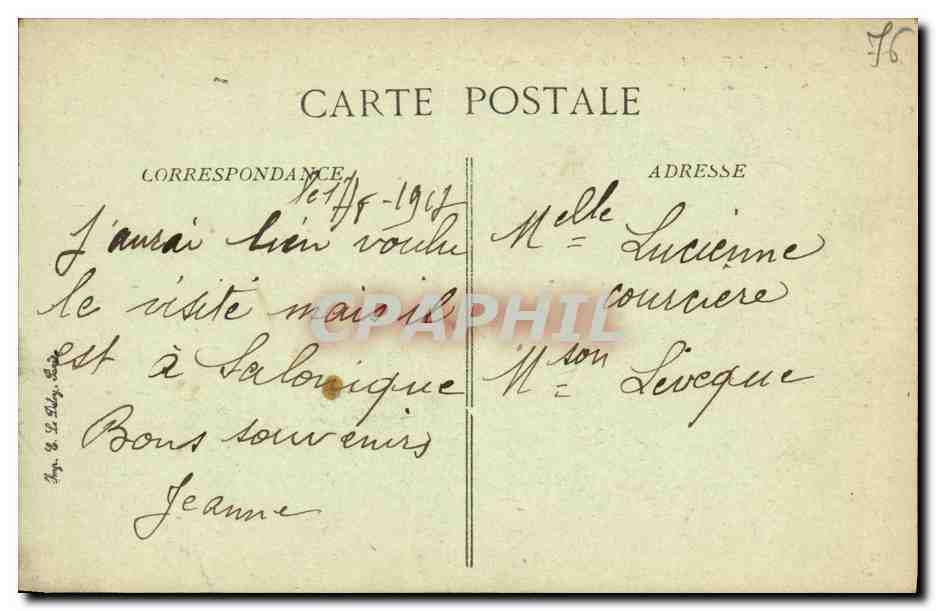 76
CARTE POSTALE
CORRESPONDANCE
ADRESSE
le 17/8-1917
J'aurai bien voulu
le visité mais il
est à Salonique
Bons souvenirs
Jeanne
Melle Lucienne
courcière
Mson Léveque
CPAPHIL
Imp. E. Le Deley, Paris